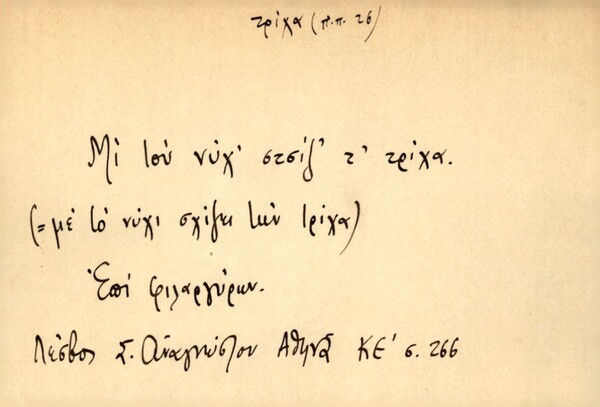 τρίχα (π.π. 26)
Μὶ τοὺ νύχ' στσίζ' τ' τρίχα.
(= μὲ τὸ νύχι σχίζει τὴν τρίχα)
Ἐπὶ φιλαργύρων.
Λέσβος Σ. Ἀναγνώστου Ἀθηνᾶ ΚΕ' σ. 266